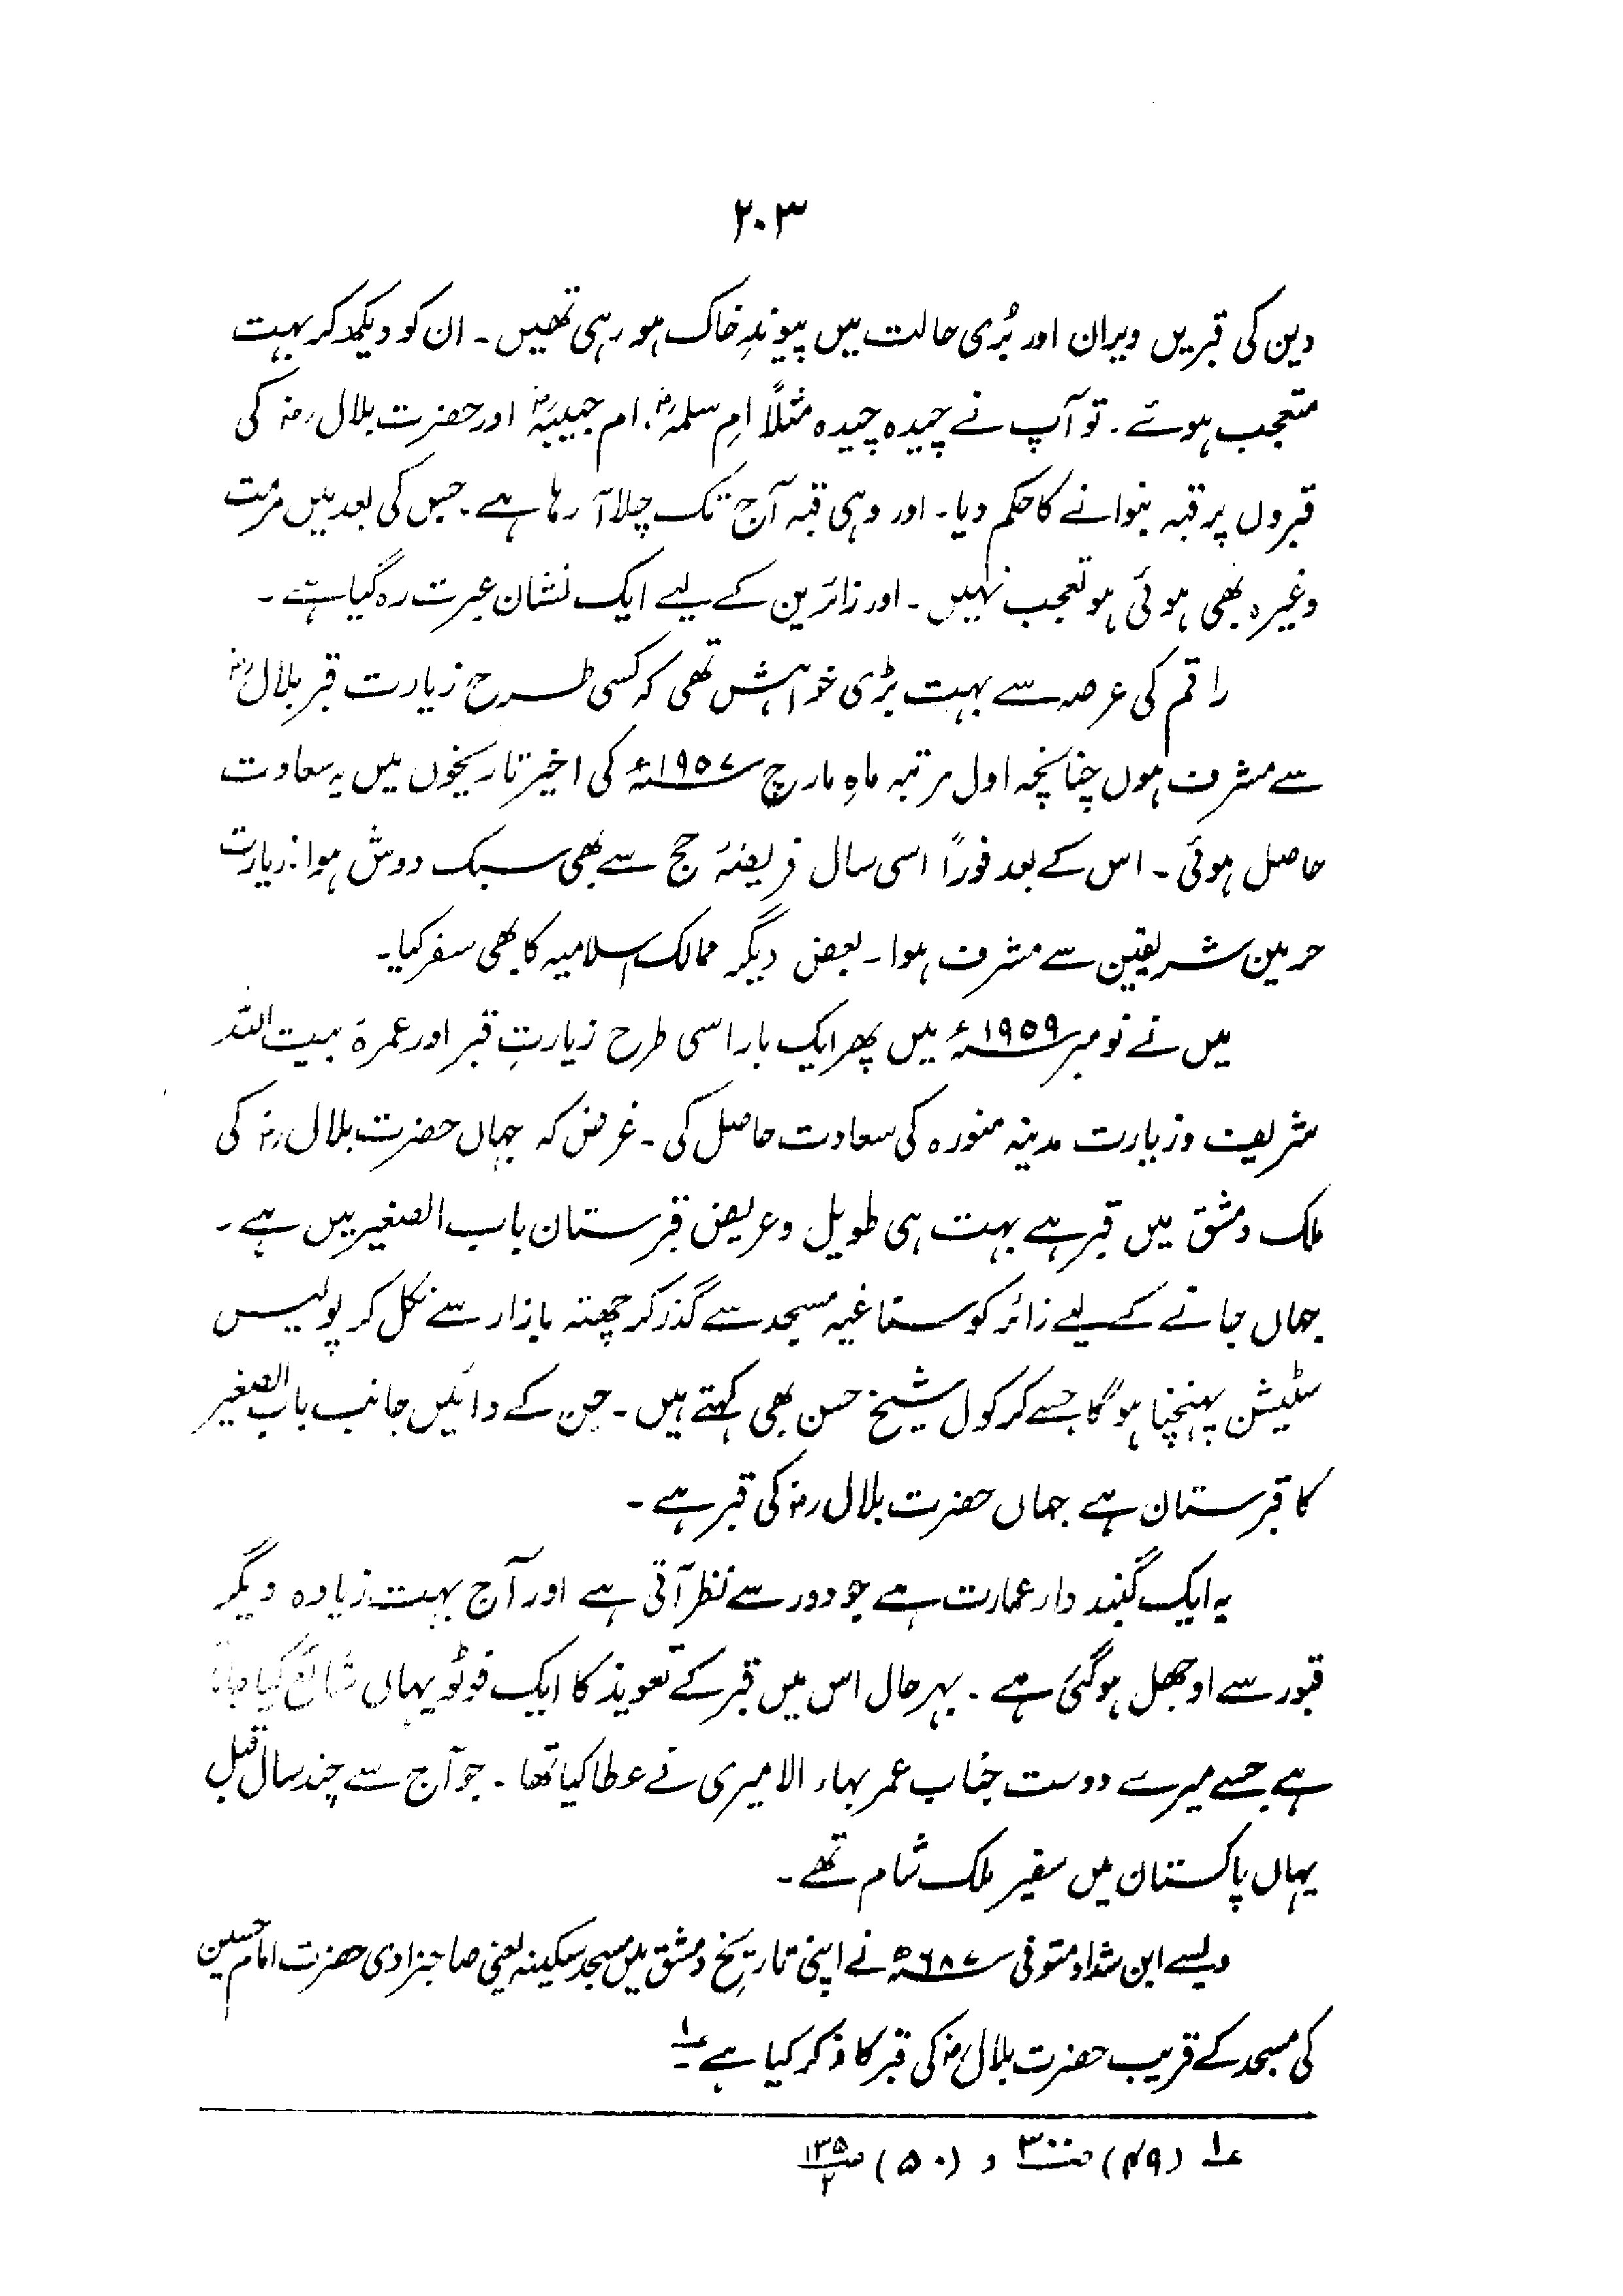 ۲۰۳
دین کی قبریں ویران اور بُری حالت میں پیوندِ خاک ہو رہی تھیں۔ ان کو دیکھ کر بہت
متعجب ہوئے۔ تو آپ نے چیدہ چیدہ مثلاً امِ سلمہؓ، ام حبیبہؓ اور حضرت بلال رضؓ کی
قبروں پر قبہ بنوانے کا حکم دیا۔ اور وہی قبہ آج تک چلا آ رہا ہے۔ جس کی بعد میں مرمت
وغیرہ بھی ہوئی ہو تعجب نہیں۔ اور زائرین کے لیے ایک نشان عبرت رہ گیا ہے۔
راقم کی عرصہ سے بہت بڑی خواہش تھی کہ کسی طرح زیارت قبر بلالؓ
سے مشرف ہوں چنانچہ اول مرتبہ ماہِ مارچ ۱۹۵۷ء کی اخیر تاریخوں میں یہ سعادت
حاصل ہوئی۔ اس کے بعد فوراً اسی سال فریضۂ حج سے بھی سبک دوش ہوا: زیارت
حرمین شریفین سے مشرف ہوا۔ بعض دیگر ممالک اسلامیہ کا بھی سفر کیا۔
میں نے نومبر ۱۹۵۹ء میں پھر ایک بار اسی طرح زیارتِ قبر اور عمرۃ بیت اللہ
شریف و زیارت مدینہ منورہ کی سعادت حاصل کی۔ غرض کہ جہاں حضرت بلال رضؓ کی
ملک دمشق میں قبر ہے بہت ہی طویل و عریض قبرستان باب الصغیر میں ہے۔
جہاں جانے کے لیے زائر کو سناغیہ مسجد سے گذر کر چھتہ بازار سے نکل کر پولیس
سٹیشن پہنچنا ہو گا جسے کرکول شیخ حسن بھی کہتے ہیں۔ جن کے دائیں جانب باب الصغیر
کا قبرستان ہے جہاں حضرت بلال رضؓ کی قبر ہے۔
یہ ایک گنبد دار عمارت ہے جو دور سے نظر آتی ہے اور آج بہت زیادہ دیگر
قبور سے اوجھل ہو گئی ہے۔ بہر حال اس میں قبر کے تعویذ کا ایک فوٹو یہاں شائع کیا جاتا
ہے جسے میرے دوست جناب عمر بہاء الامیری نے عطا کیا تھا۔ جو آج سے چند سال قبل
یہاں پاکستان میں سفیر ملک شام تھے۔
ویسے ابن شداد متوفی ۶۸۷ھ نے اپنی تاریخِ دمشق میں مسجد سکینہ یعنی صاحبزادی حضرت امام حسین
کی مسجد کے قریب حضرت بلال رضؓ کی قبر کا ذکر کیا ہے ؏۱
؏۱ (۴۹) ص ۳۰۰ و (۵۰) ص ۱۳۵/۲